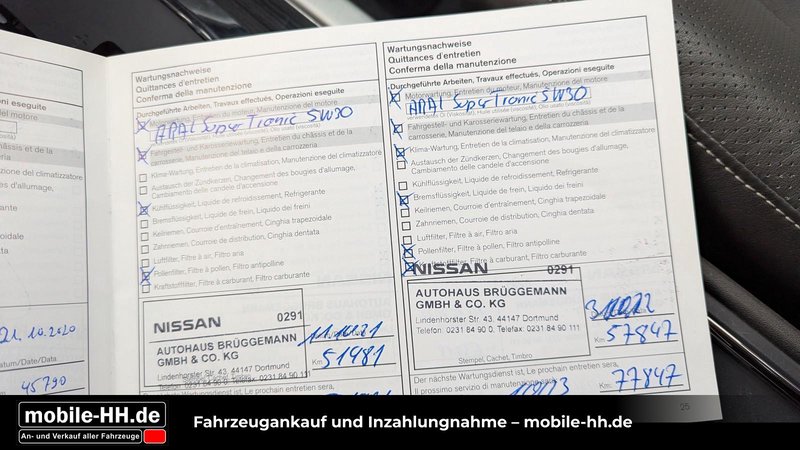 21.10.2020
Datum/Date/Data
45790
Wartungsnachweise
Quittances d'entretien
Conferma della manutenzione
Durchgeführte Arbeiten, Travaux effectués, Operazioni eseguite
Motorwartung, Entretien du moteur, Manutenzione del motore
ARAL SuperTronic 5W30
Fahrgestell- und Karosseriewartung, Entretien du châssis et de la
carrosserie, Manutenzione del telaio e della carrozzeria
Klima-Wartung, Entretien de la climatisation, Manutenzione del climatizzatore
Austausch der Zündkerzen, Changement des bougies d'allumage,
Cambiamento delle candele d'accensione
Kühlflüssigkeit, Liquide de refroidissement, Refrigerante
Bremsflüssigkeit, Liquide de frein, Liquido dei freini
Keilriemen, Courroie d'entraînement, Cinghia trapezoidale
Zahnriemen, Courroie de distribution, Cinghia dentata
Luftfilter, Filtre à air, Filtro aria
Pollenfilter, Filtre à pollen, Filtro antipolline
Kraftstofffilter, Filtre à carburant, Filtro carburante
NISSAN 0291
AUTOHAUS BRÜGGEMANN
GMBH & CO. KG
Lindenhorster Str. 43, 44147 Dortmund
Telefon: 0231 84 90 0, Telefax: 0231 84 90 111
11.10.21
Km: 51481
Der nächste Wartungsdienst ist, Le prochain entretien sera,
Wartungsnachweise
Quittances d'entretien
Conferma della manutenzione
Durchgeführte Arbeiten, Travaux effectués, Operazioni eseguite
Motorwartung, Entretien du moteur, Manutenzione del motore
ARAL SuperTronic 5W30
Fahrgestell- und Karosseriewartung, Entretien du châssis et de la
carrosserie, Manutenzione del telaio e della carrozzeria
Klima-Wartung, Entretien de la climatisation, Manutenzione del climatizzatore
Austausch der Zündkerzen, Changement des bougies d'allumage,
Cambiamento delle candele d'accensione
Kühlflüssigkeit, Liquide de refroidissement, Refrigerante
Bremsflüssigkeit, Liquide de frein, Liquido dei freini
Keilriemen, Courroie d'entraînement, Cinghia trapezoidale
Zahnriemen, Courroie de distribution, Cinghia dentata
Luftfilter, Filtre à air, Filtro aria
Pollenfilter, Filtre à pollen, Filtro antipolline
Kraftstofffilter, Filtre à carburant, Filtro carburante
NISSAN 0291
AUTOHAUS BRÜGGEMANN
GMBH & CO. KG
Lindenhorster Str. 43, 44147 Dortmund
Telefon: 0231 84 90 0, Telefax: 0231 84 90 111
Km: 57847
Stempel, Cachet, Timbro
Der nächste Wartungsdienst ist, Le prochain entretien sera,
Il prossimo servizio di manutenzione sarà,
Km: 77847
25
mobile-HH.de
An- und Verkauf aller Fahrzeuge
Fahrzeugankauf und Inzahlungnahme – mobile-hh.de